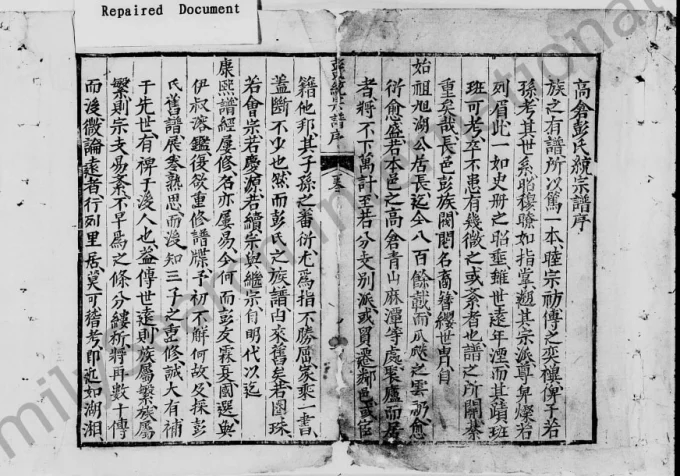 Repaired Document
高倉彭氏統宗譜序
族之有譜所以篤一本睦宗祊傳之奕禩俾子若
孫考其世系昭穆瞭如指掌愬其宗派尊卑燦若
列眉此一如史册之昭垂雖世遠年湮而其頭班
班可考卒不患有幾微之或紊者也譜之所關綦
重矣哉長邑彭族閥閱名裔簪纓世冑自
始祖旭湖公居長迄今八百餘載而瓜瓞之雲礽愈
衍愈盛若本邑之高倉青山麻潭等處聚廬而居
者將不下萬計至若分支別派或貿遷鄰邑或宦
彭氏統宗譜序
籍他邦其子孫之番衍尤爲指不勝屈家乘一書
蓋斷不少也然而彭氏之族譜由來舊矣若圖珠
若會宗若慶源若續宗與繼宗自明代以迄
康熙譜經屢修名亦屢易今何而彭友霞夏國選與
伊叔溶鑑復欲重修譜牒予初不解何故及採彭
氏舊譜展叁熟思而後知三子之重修誠大有補
于先世有裨于後人也益傳世遠則族屬繁族屬
繁則宗支易紊不早爲之條分縷析將再數十傳
而後微論遠者行列里居莫可稽考即近如湖湘